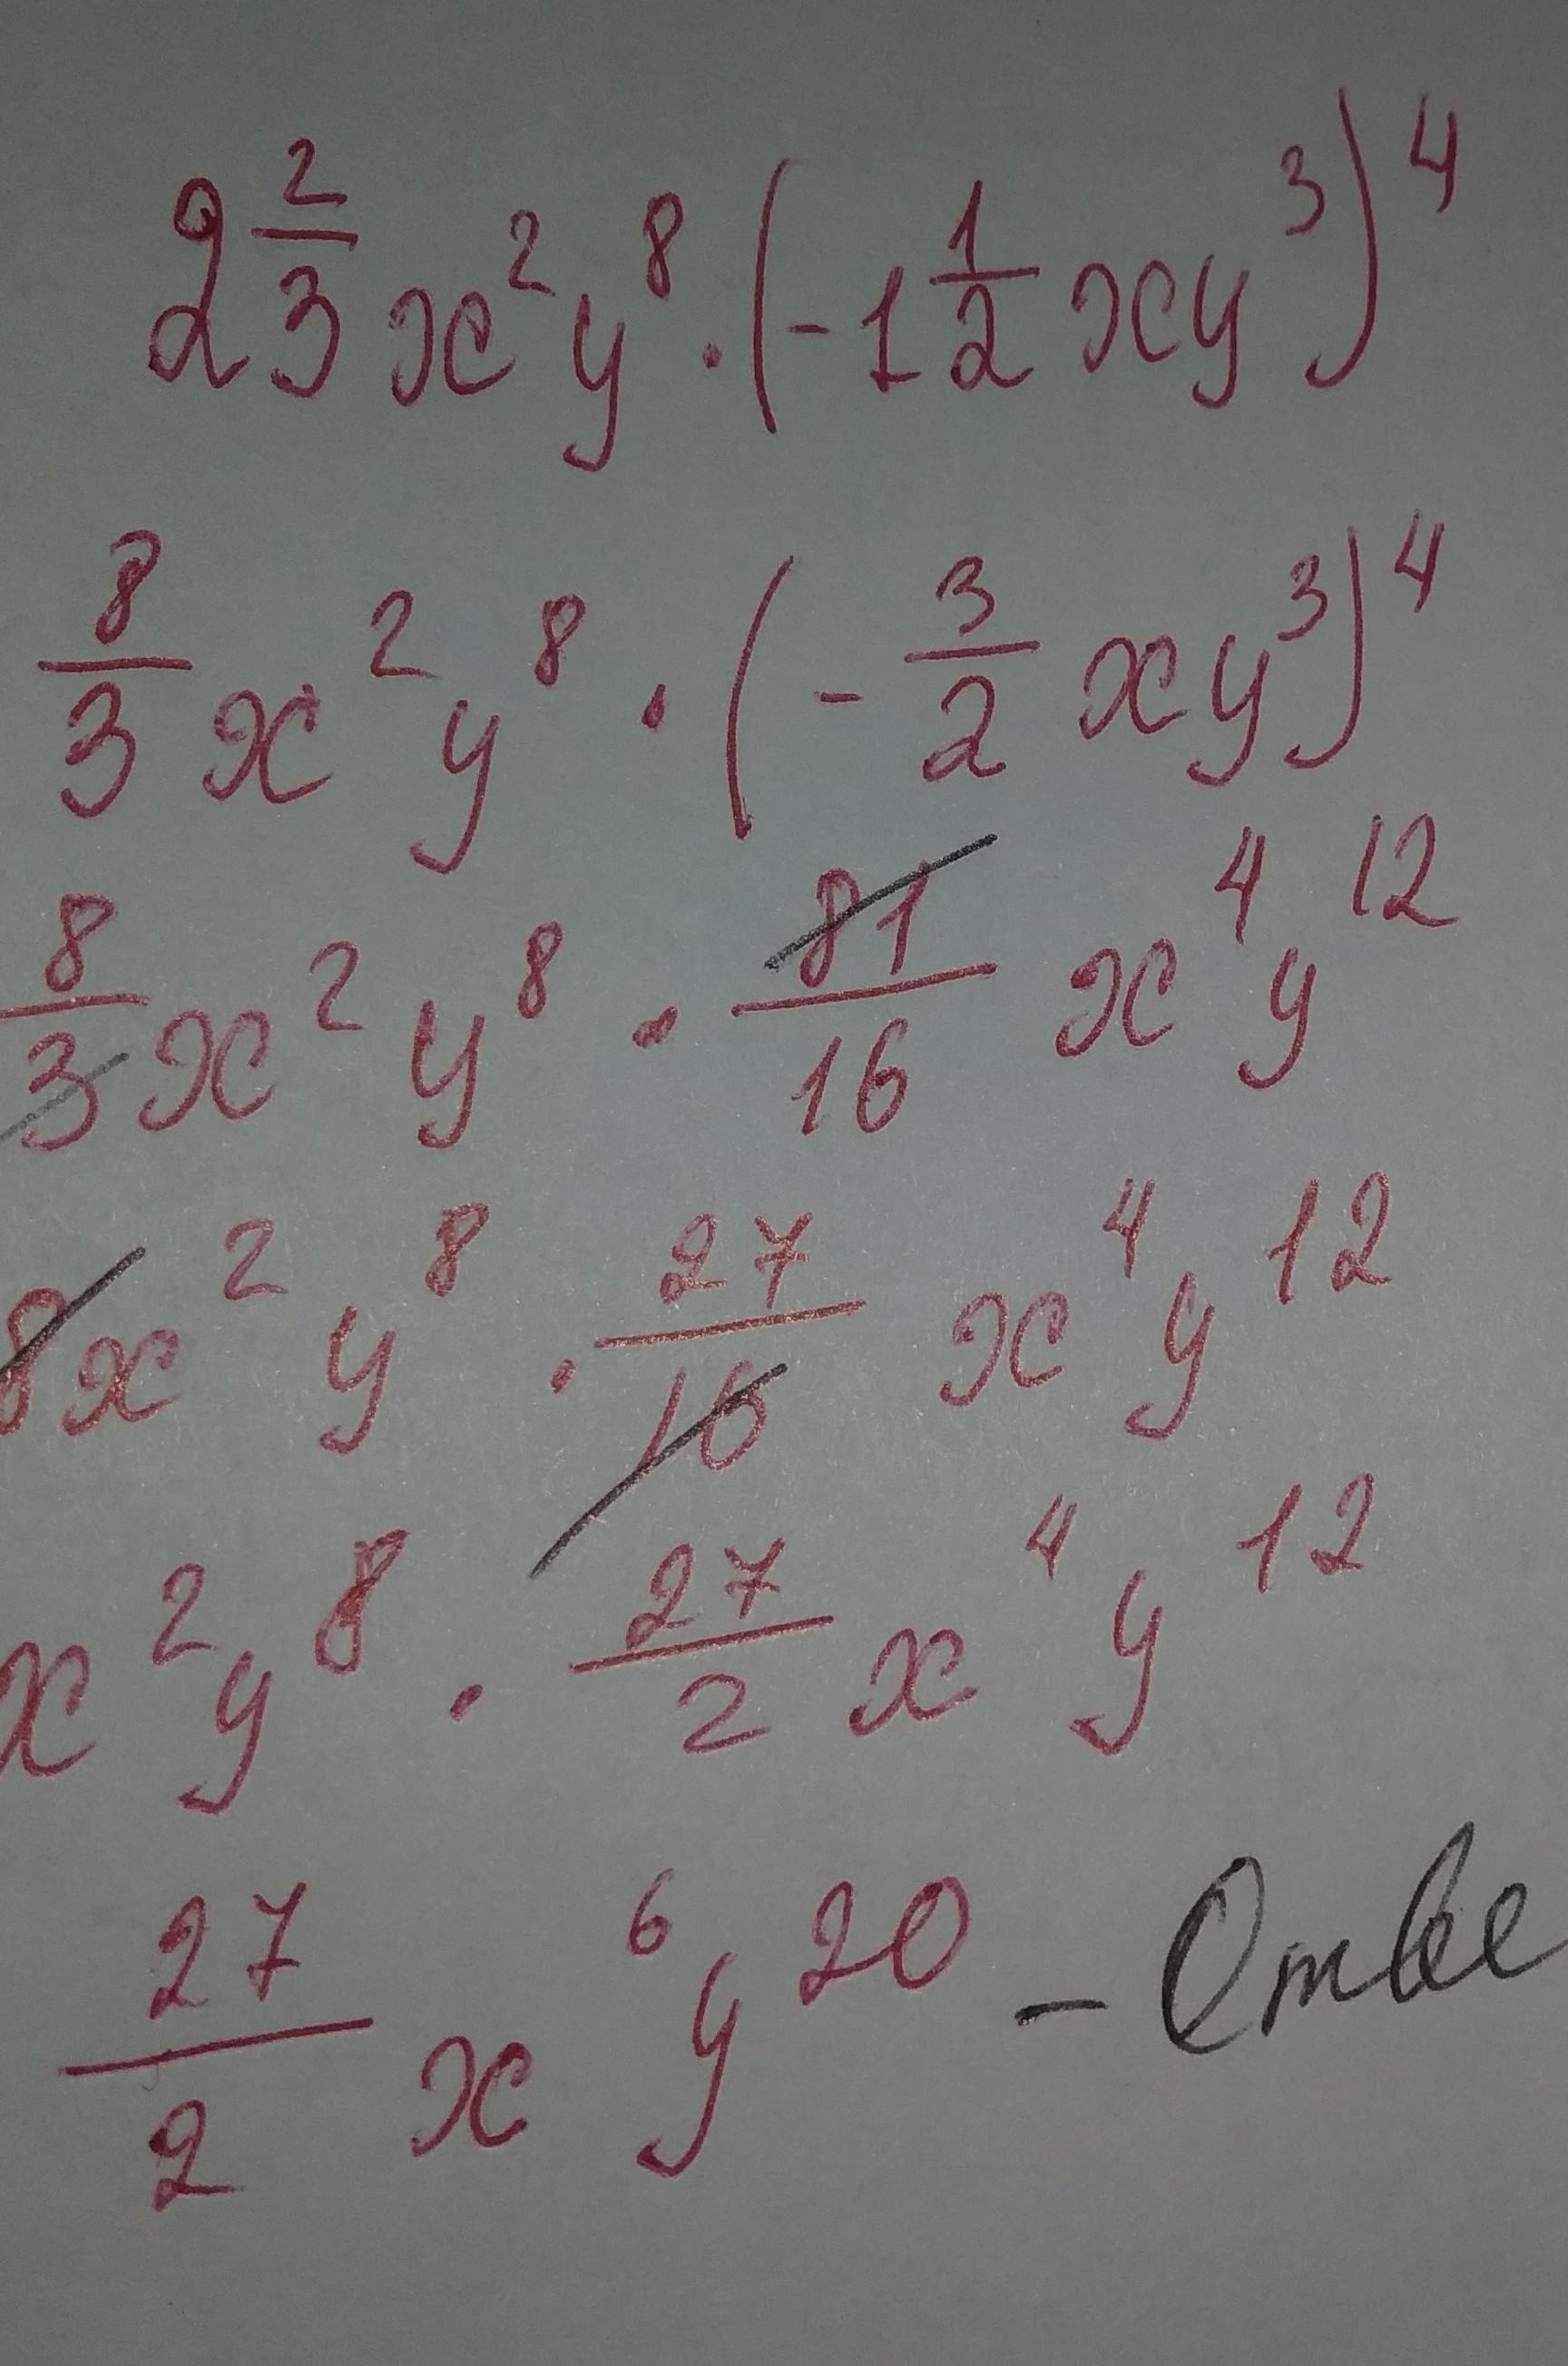 2 2/3 x² y⁸ · (-1 1/2 xy³)⁴
8/3 x² y⁸ · (- 3/2 xy³)⁴
8/3 x² y⁸ · 81/16 x⁴ y¹²
8x² y⁸ · 27/16 x⁴ y¹²
x² y⁸ · 27/2 x⁴ y¹²
27/2 x⁶ y²⁰ - Отве